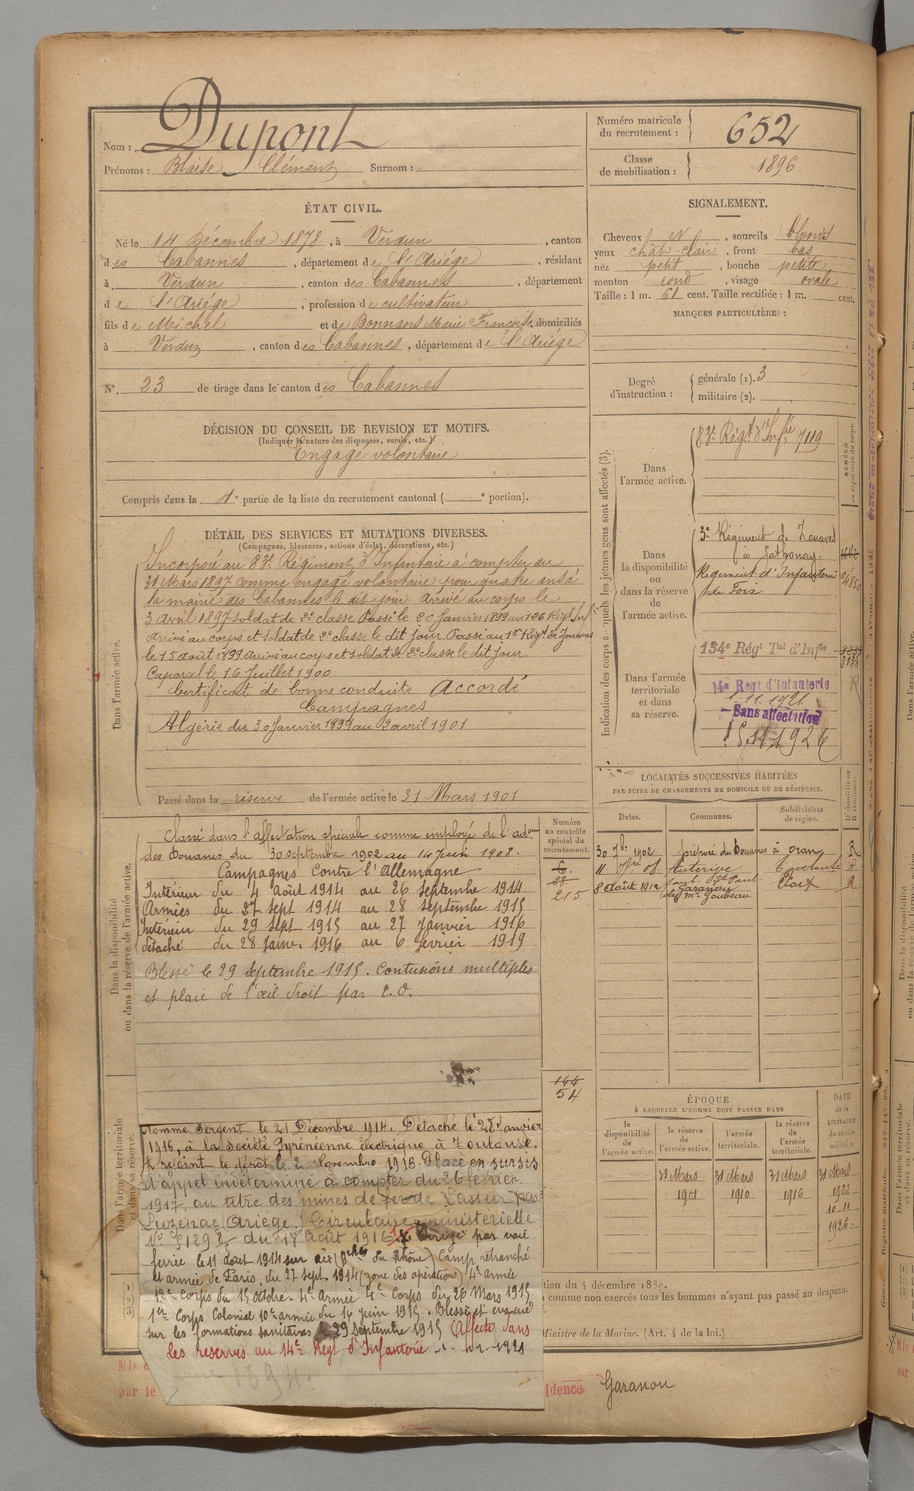 Nom : Dupont
Prénoms : Blaise Clément Surnom :
Numéro matricule du recrutement : 652
Classe de mobilisation : 1896
ÉTAT CIVIL.
Né le 14 Décembre 1878, à Verdun, canton
des Cabannes, département de l'Ariège, résidant
à Verdun, canton des Cabannes, département
de l'Ariège, profession de cultivateur
fils de Michel et de Bonnans Marie Françoise, domiciliés
à Verdun, canton des Cabannes, département de l'Ariège
N° 23 de tirage dans le canton des Cabannes
SIGNALEMENT.
Cheveux N, sourcils blonds
yeux chât-clair, front bas
nez petit, bouche petite
menton rond, visage ovale
Taille : 1 m. 61 cent. Taille rectifiée : 1 m. cent.
MARQUES PARTICULIÈRES :
Degré d'instruction : générale (1). 3
militaire (2).
DÉCISION DU CONSEIL DE REVISION ET MOTIFS.
(Indiquer la nature des dispenses, sursis, etc.)
Engagé volontaire
Compris dans la 4e partie de la liste du recrutement cantonal ( e portion).
DÉTAIL DES SERVICES ET MUTATIONS DIVERSES.
(Campagnes, blessures, actions d'éclat, décorations, etc.)
Dans l'armée active.
Incorporé au 83e Régiment d'Infanterie à compter du
31 Mars 1897 comme engagé volontaire pour quatre ans à
la mairie des Cabannes le dit jour. Arrivé au corps le
3 Avril 1897 soldat de 2e classe. Passé le 20 Janvier 1899 au 126 Régt Inf
Arrivé au corps et soldat de 2e classe le dit jour. Passé au 1er Régt de Zouaves
le 15 août 1899. Arrivé au corps et soldat de 2e classe le dit jour.
Caporal le 16 Juillet 1900
Certificat de bonne conduite Accordé
Campagnes
Algérie du 30 Janvier 1899 au 2 avril 1901
Passé dans la réserve de l'armée active le 31 Mars 1901
Indication des corps auxquels les jeunes gens sont affectés (3).
Dans l'armée active.
83e Régt d'Infie 7119
Dans la disponibilité ou dans la réserve de l'armée active.
3e Régiment de Zouaves
à
Régiment d'Infanterie
de Foix
Dans l'armée territoriale et dans sa réserve.
134e Régt Tal d'Infie
14e Regt d'Infanterie
1.11.1921
Sans affectation
1926
LOCALITÉS SUCCESSIVES HABITÉES
PAR SUITE DE CHANGEMENTS DE DOMICILE OU DE RÉSIDENCE.
Dates. Communes. Subdivisions de région.
30 7bre 1902 préposé des Douanes à Oran R
Auterive
8 Août 1912 Garanou Foix R
Dans la disponibilité ou dans la réserve de l'armée active.
Numéro au contrôle spécial du recrutement.
215
Classé dans l'affectation spéciale comme employé de l'adon
des Douanes du 30 septembre 1902 au 14 Juin 1908.
Campagnes contre l'Allemagne
Intérieur du 4 Août 1914 au 26 septembre 1914
Armées du 27 sept 1914 au 28 septembre 1915
Intérieur du 29 sept 1915 au 27 Janvier 1916
détaché du 28 Janv. 1916 au 6 février 1919
Blessé le 29 septembre 1915. Contusions multiples
et plaie de l'œil droit par E.O.
144
54
Dans l'armée territoriale et dans sa réserve.
Nommé Sergent le 21 Décembre 1914. Détaché le 28 Janvier
1916, à la Société Pyrénéenne électrique, à Toulouse.
A rejoint le dépôt le 2 Novembre 1916. Placé en sursis
d'appel indéterminé à compter du 26 février
1917, au titre des mines de fer de Lassur par
Luzenac (Ariège) Circulaire ministérielle
du 18 Août 1916. Dirigé par voie
ferrée le 11 août 1914 sur Aix (Bches du Rhône) Camp retranché
et armée de Paris, du 27 sept. 1914 (zone des opérations) 4e armée
12e Corps du 15 octobre. 4e Armée 4e Corps du 26 Mars 1915
1er Corps Colonial 10e armée du 14 juin 1915. Blessé et évacué
sur les formations sanitaires 29 septembre 1915 Affecté dans
les réserves au 14e Régt d'Infanterie
ÉPOQUE
À LAQUELLE L'HOMME DOIT PASSER DANS
la disponibilité de l'armée active.
la réserve de l'armée active.
l'armée territoriale.
la réserve de l'armée territoriale.
DATE de la libération du service militaire
31 Mars 1901
31 Mars 1910
31 Mars 1916
31 Mars 1922
10.11
1926.
comme non exercés tous les hommes n'ayant pas passé au drapeau.
Ministre de la Marine. (Art. 4 de la loi.)
par le
idence Garanou